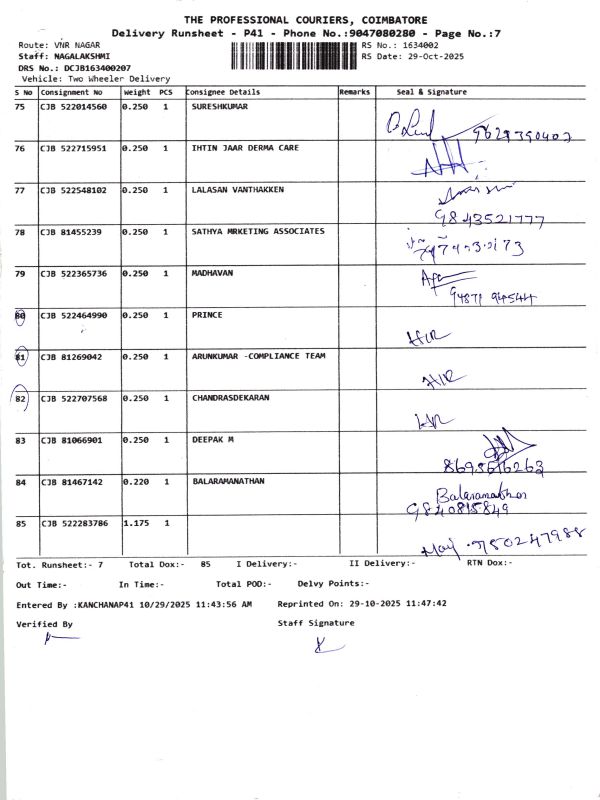 THE PROFESSIONAL COURIERS, COIMBATORE
Delivery Runsheet - P41 - Phone No.:9047080280 - Page No.:7
Route: VNR NAGAR RS No.: 1634002
Staff: NAGALAKSHMI RS Date: 29-Oct-2025
DRS No.: DCJB163400207
Vehicle: Two Wheeler Delivery
S No Consignment No Weight PCS Consignee Details Remarks Seal & Signature
75 CJB 522014560 0.250 1 SURESHKUMAR
76 CJB 522715951 0.250 1 IHTIN JAAR DERMA CARE
77 CJB 522548102 0.250 1 LALASAN VANTHAKKEN
9843521777
78 CJB 81455239 0.250 1 SATHYA MRKETING ASSOCIATES
79 CJB 522365736 0.250 1 MADHAVAN
94871 94544
80 CJB 522464990 0.250 1 PRINCE
H/R
81 CJB 81269042 0.250 1 ARUNKUMAR -COMPLIANCE TEAM
H/R
82 CJB 522707568 0.250 1 CHANDRASDEKARAN
H/R
83 CJB 81066901 0.250 1 DEEPAK M
84 CJB 81467142 0.220 1 BALARAMANATHAN
Balaramanathan
9840815849
85 CJB 522283786 1.175 1
9750247988
Tot. Runsheet:- 7 Total Dox:- 85 I Delivery:- II Delivery:- RTN Dox:-
Out Time:- In Time:- Total POD:- Delvy Points:-
Entered By :KANCHANAP41 10/29/2025 11:43:56 AM Reprinted On: 29-10-2025 11:47:42
Verified By Staff Signature